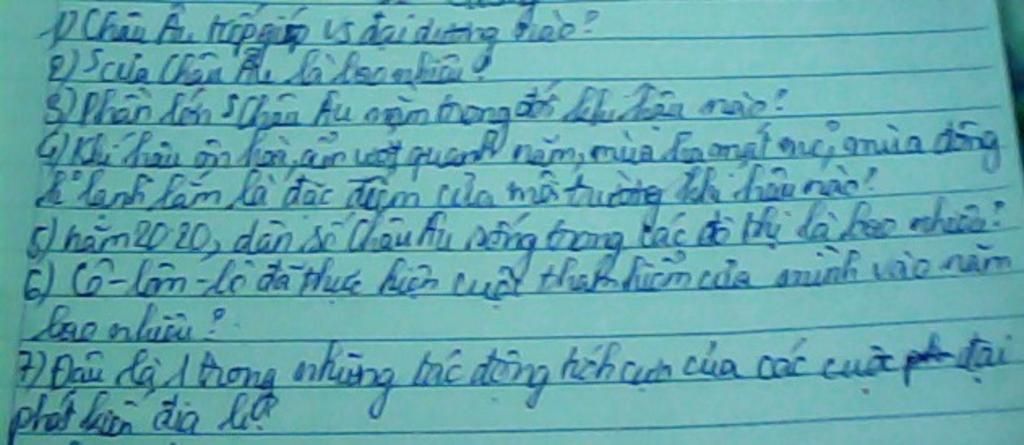 1) Châu Âu tiếp giáp vs đại dương nào?
2) S của Châu Âu là bao nhiêu?
3) Phần lớn S Châu Âu nằm trong đới khí hậu nào?
4) Khí hậu ôn hoà, ẩm ướt quanh năm, mùa hạ mát mẻ, mùa đông
k lạnh lắm là đặc điểm của môi trường khí hậu nào?
5) năm 2020, dân số Châu Âu sống trong các đô thị là bao nhiêu?
6) Cô-lôm-bô đã thực hiện cuộc thám hiểm của mình vào năm
bao nhiêu?
7) Đâu là 1 trong những tác động tích cực của các cuộc đại
phát kiến địa lí?